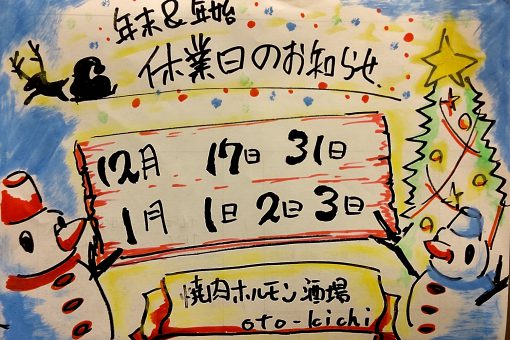 年末&年始
休業日のお知らせ
12月 17日 31日
1月 1日 2日 3日
焼肉ホルモン酒場
oto-kichi